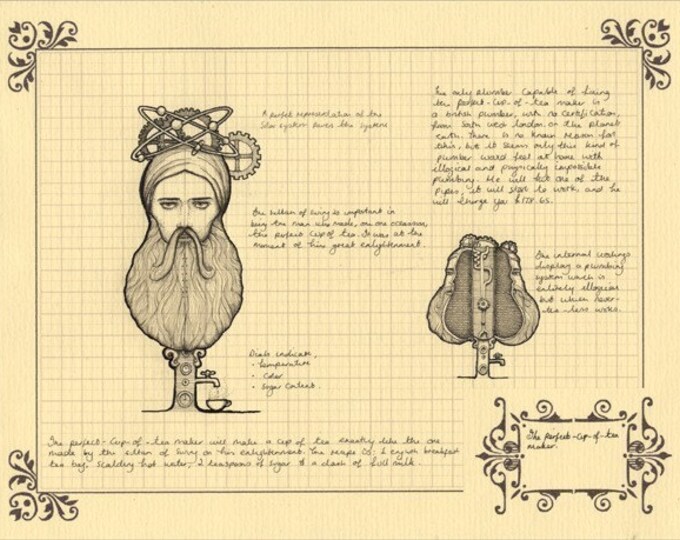 A perfect representation of the
Solar system powers the system
The only plumber capable of fixing
the perfect-cup-of-tea maker is
a british plumber, with no certification,
from South west london on the planet
earth. There is no known reason for
this, but it seems only this kind of
plumber would feel at home with
illogical and physically impossible
plumbing. He will hit one of the
pipes, it will start to work, and he
will charge you
The sultan of swing is important in
being the man who made, on one occasion,
the perfect cup of tea. It was at the
moment of his great enlightenment.
The internal
display a plumbing
system which is
entirely illogical
but which never-
the-less works.
Dials indicate,
• Temperature
• Color
• Sugar Content.
The perfect-cup-of-tea maker will make a cup of tea exactly like the one
made by the sultan of swing on his enlightenment. The recipe is: 1 english breakfast
tea bag, scalding hot water, 2 teaspoons of sugar & a dash of full milk.
The perfect-cup-of-tea
maker.